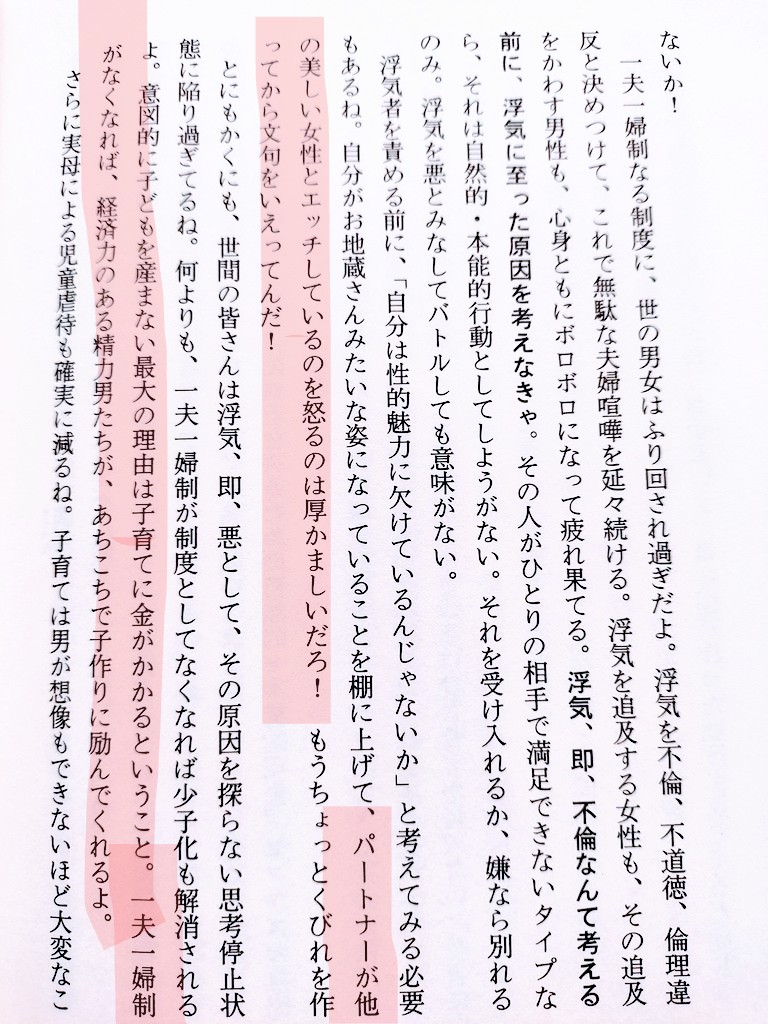 ないか！
一夫一婦制なる制度に、世の男女はふり回され過ぎだよ。浮気を不倫、不道徳、倫理違
反と決めつけて、これで無駄な夫婦喧嘩を延々続ける。浮気を追及する女性も、その追及
をかわす男性も、心身ともにボロボロになって疲れ果てる。浮気、即、不倫なんて考える
前に、浮気に至った原因を考えなきゃ。その人がひとりの相手で満足できないタイプな
ら、それは自然的・本能的行動としてしようがない。それを受け入れるか、嫌なら別れる
のみ。浮気を悪とみなしてバトルしても意味がない。
浮気者を責める前に、「自分は性的魅力に欠けているんじゃないか」と考えてみる必要
もあるね。自分がお地蔵さんみたいな姿になっていることを棚に上げて、パートナーが他
の美しい女性とエッチしているのを怒るのは厚かましいだろ！もうちょっとくびれを作
ってから文句をいえってんだ！
とにもかくにも、世間の皆さんは浮気、即、悪として、その原因を探らない思考停止状
態に陥り過ぎてるね。何よりも、一夫一婦制が制度としてなくなれば少子化も解消される
よ。意図的に子どもを産まない最大の理由は子育てに金がかかるということ。一夫一婦制
がなくなれば、経済力のある精力男たちが、あちこちで子作りに励んでくれるよ。
さらに実母による児童虐待も確実に減るね。子育ては男が想像もできないほど大変なこ